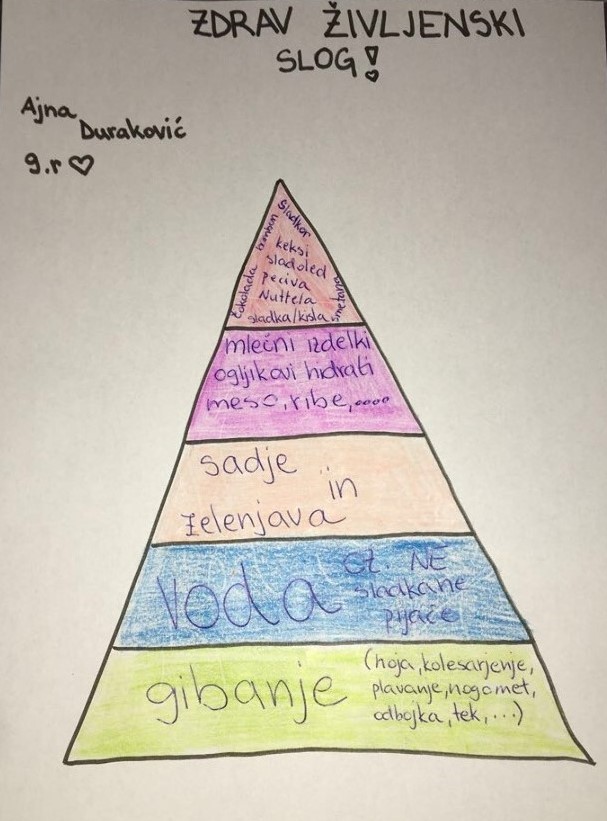 ZDRAV ŽIVLJENSKI
SLOG!
Ajna
Duraković
9.r
Sladkor
bombon
keksi
sladoled
čokolada
peciva
Nuttela
smetana
sladka/kisla
mlečni izdelki
ogljikovi hidrati
meso, ribe,....
sadje
in
zelenjava
Voda
oz. NE
sladkane
pijače
gibanje
(hoja, kolesarjenje,
plavanje, nogomet,
odbojka, tek, ...)